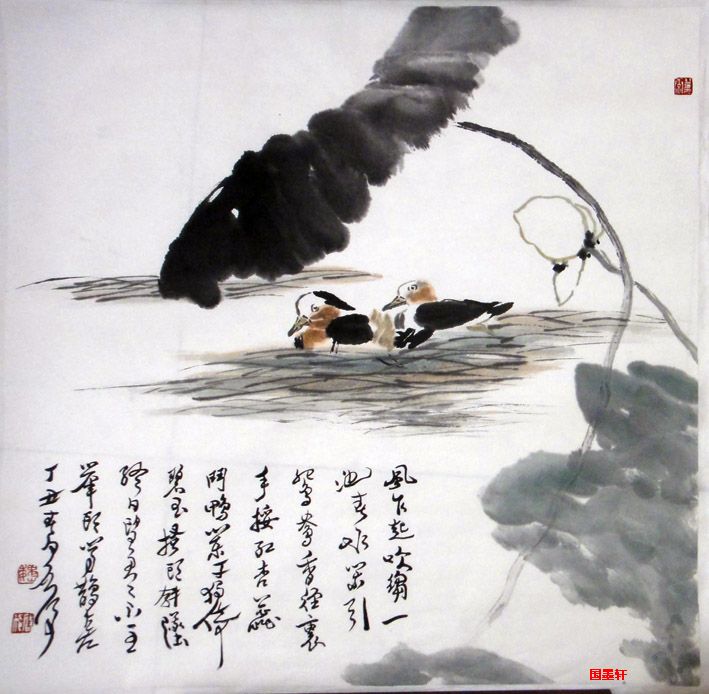 風乍起吹縐一
池春水閑引
鴛鴦香徑裏
手挼紅杏蕊
鬥鴨闌干獨倚
碧玉搔頭斜墜
終日望君々不至
舉頭聞鵲喜
丁丑春月
国墨轩